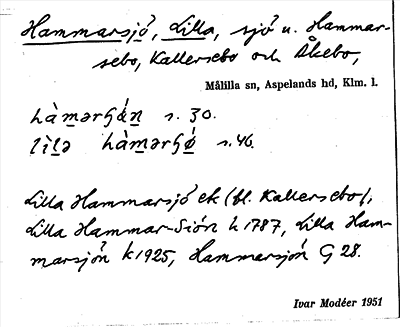 Hammarsjö, Lilla, sjö u. Hammar-
sebo, Kallersebo och Åkebo,
Målilla sn, Aspelands hd, Klm. l.
s. 30.
s. 46.
Lilla Hammarsjö ek (bl. Kallersebo),
Lilla Hammar-Siön k 1787, Lilla Ham-
marsjön k 1925, Hammarsjön G 28.
Ivar Modéer 1951